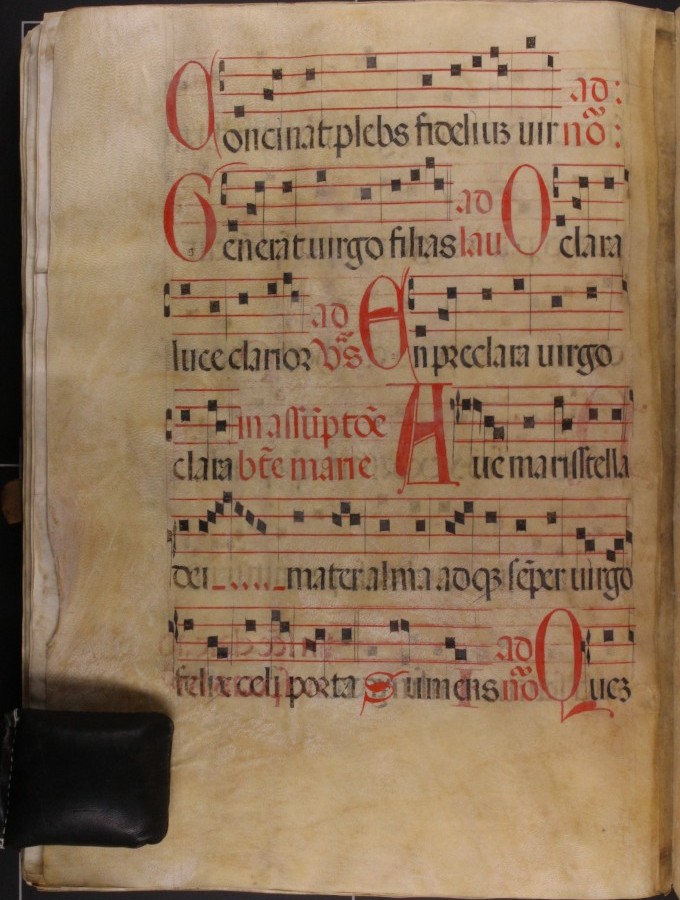 ad:
Concinat plebs fideliuz uir nõ:
ad
Generat uirgo filias lau O clara
ad
luce clarior Vs̃ En preclara uirgo
in assũptõe
clara btẽ marie Aue maris stella
dei mater alma adqz sẽper uirgo
ad
felix celi porta Sumens nõ Quez